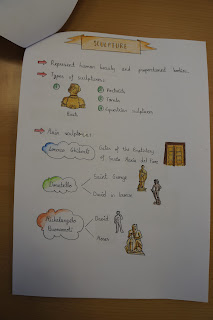 SCULPTURE
Represent human beauty and proportioned bodies.
Types of sculptures:
Bust
Portraits
Tombs
Equestrian sculptures
Main sculptors:
Lorenzo Ghiberti
Gates of the Baptistery
of Santa Maria del Fiore
Donatello
Saint George
David in bronze
Michelangelo
Buonarroti
David
Moses